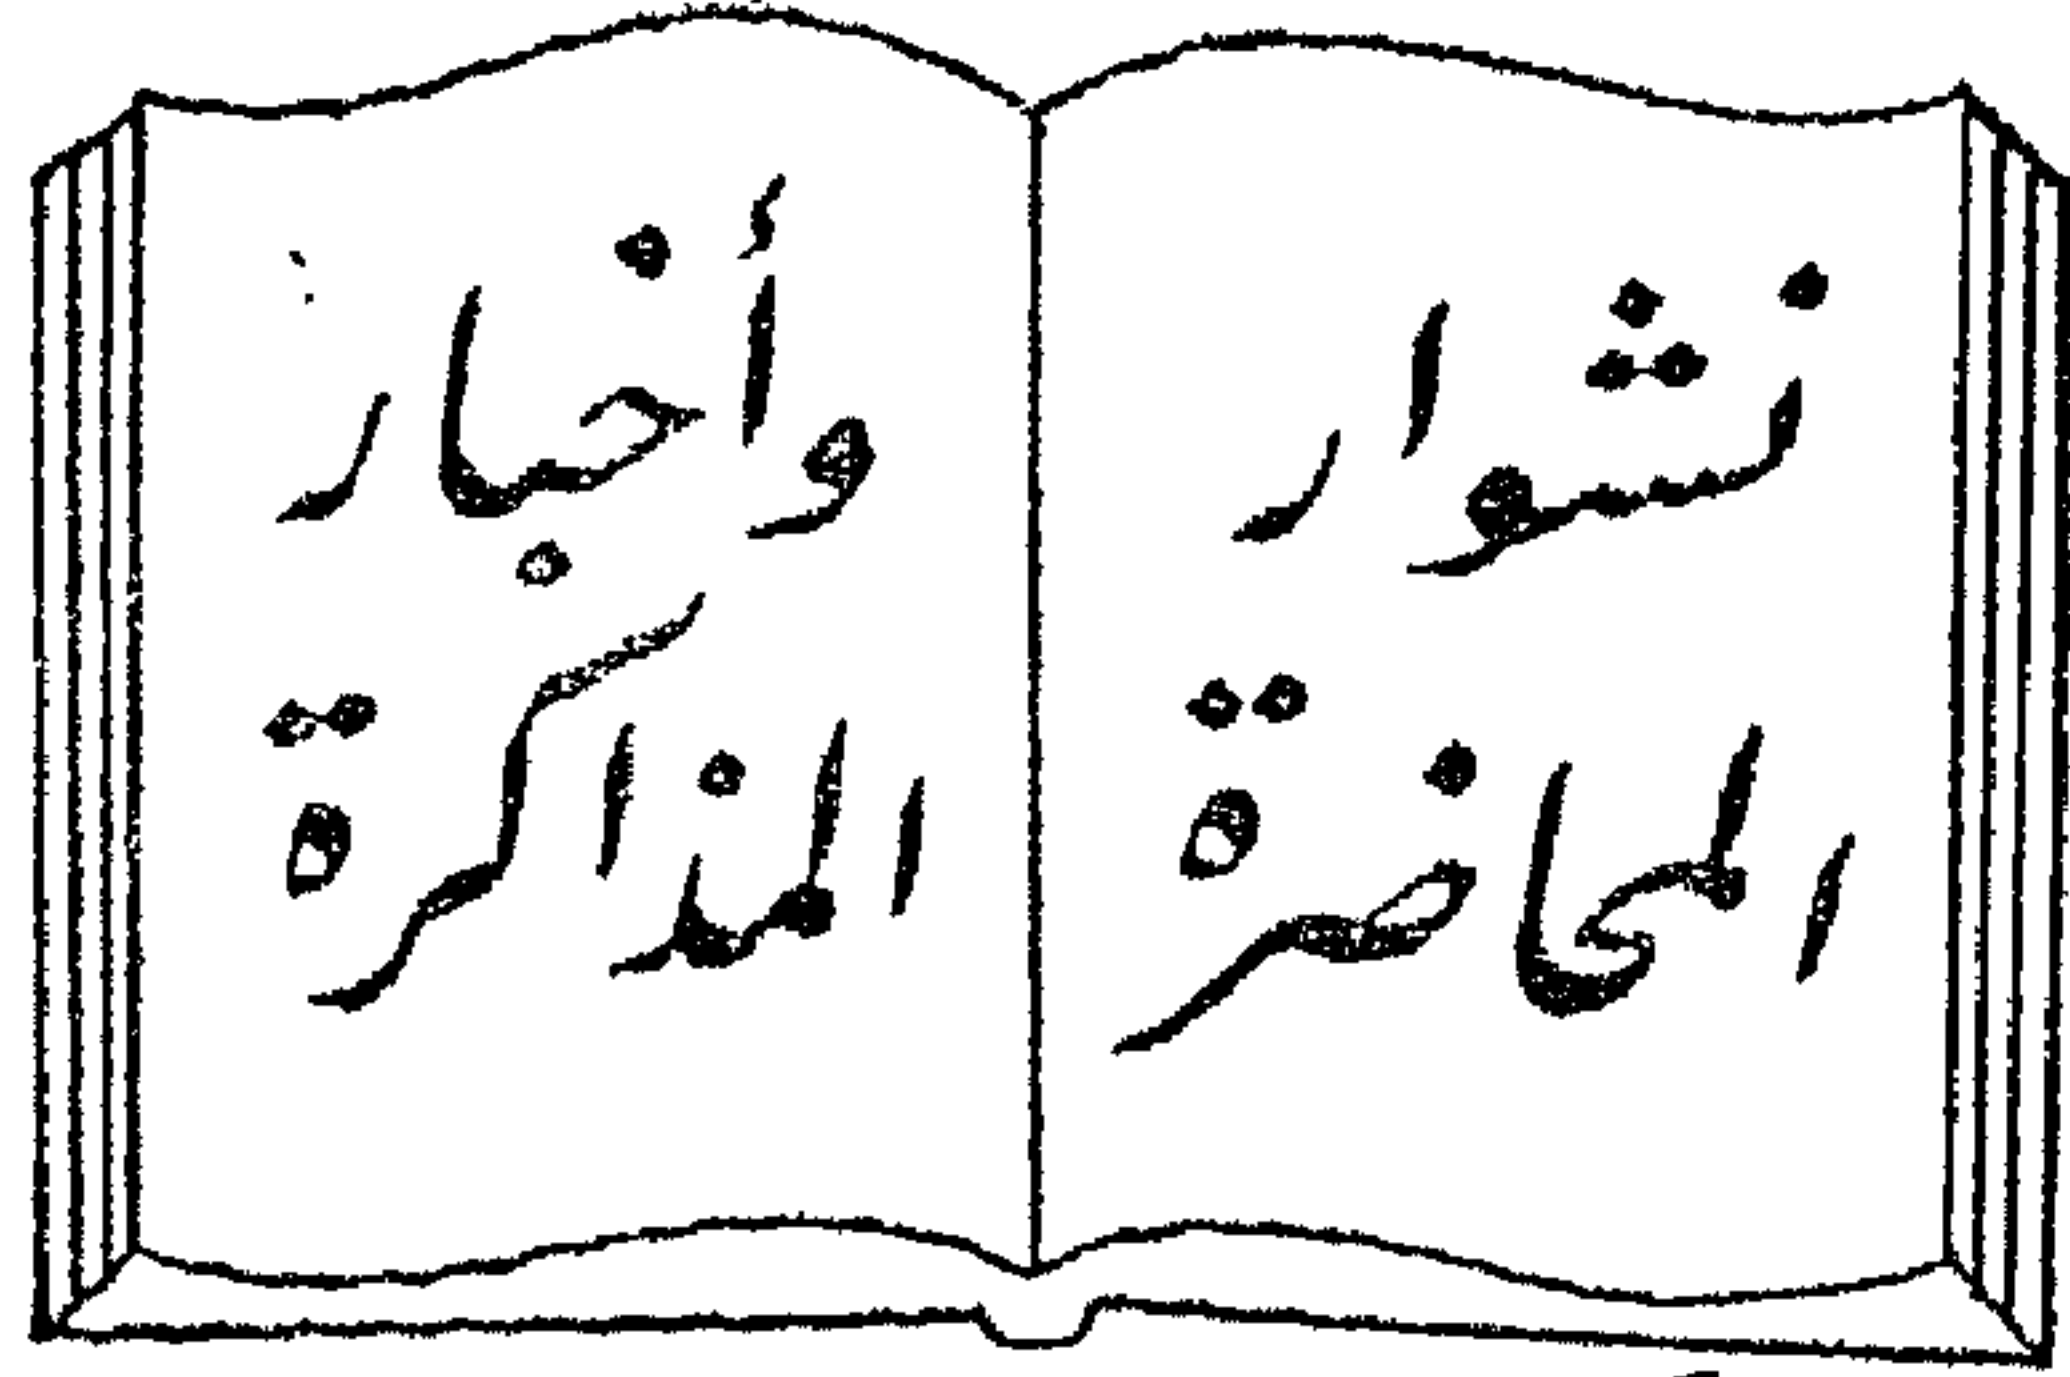 نشوار
المحاضرة
وأخبار
المذاكرة